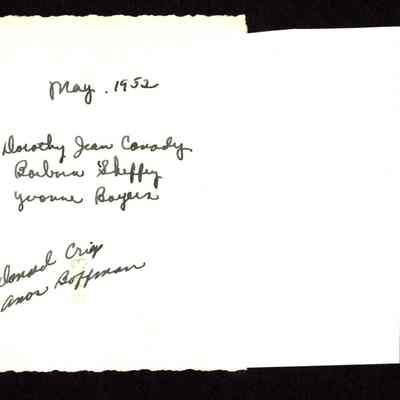 May. 1952
Dorothy Jean Canady
Barbara Sheffey
Yvonne Boyers
Donald Crisp
Amos Boffman